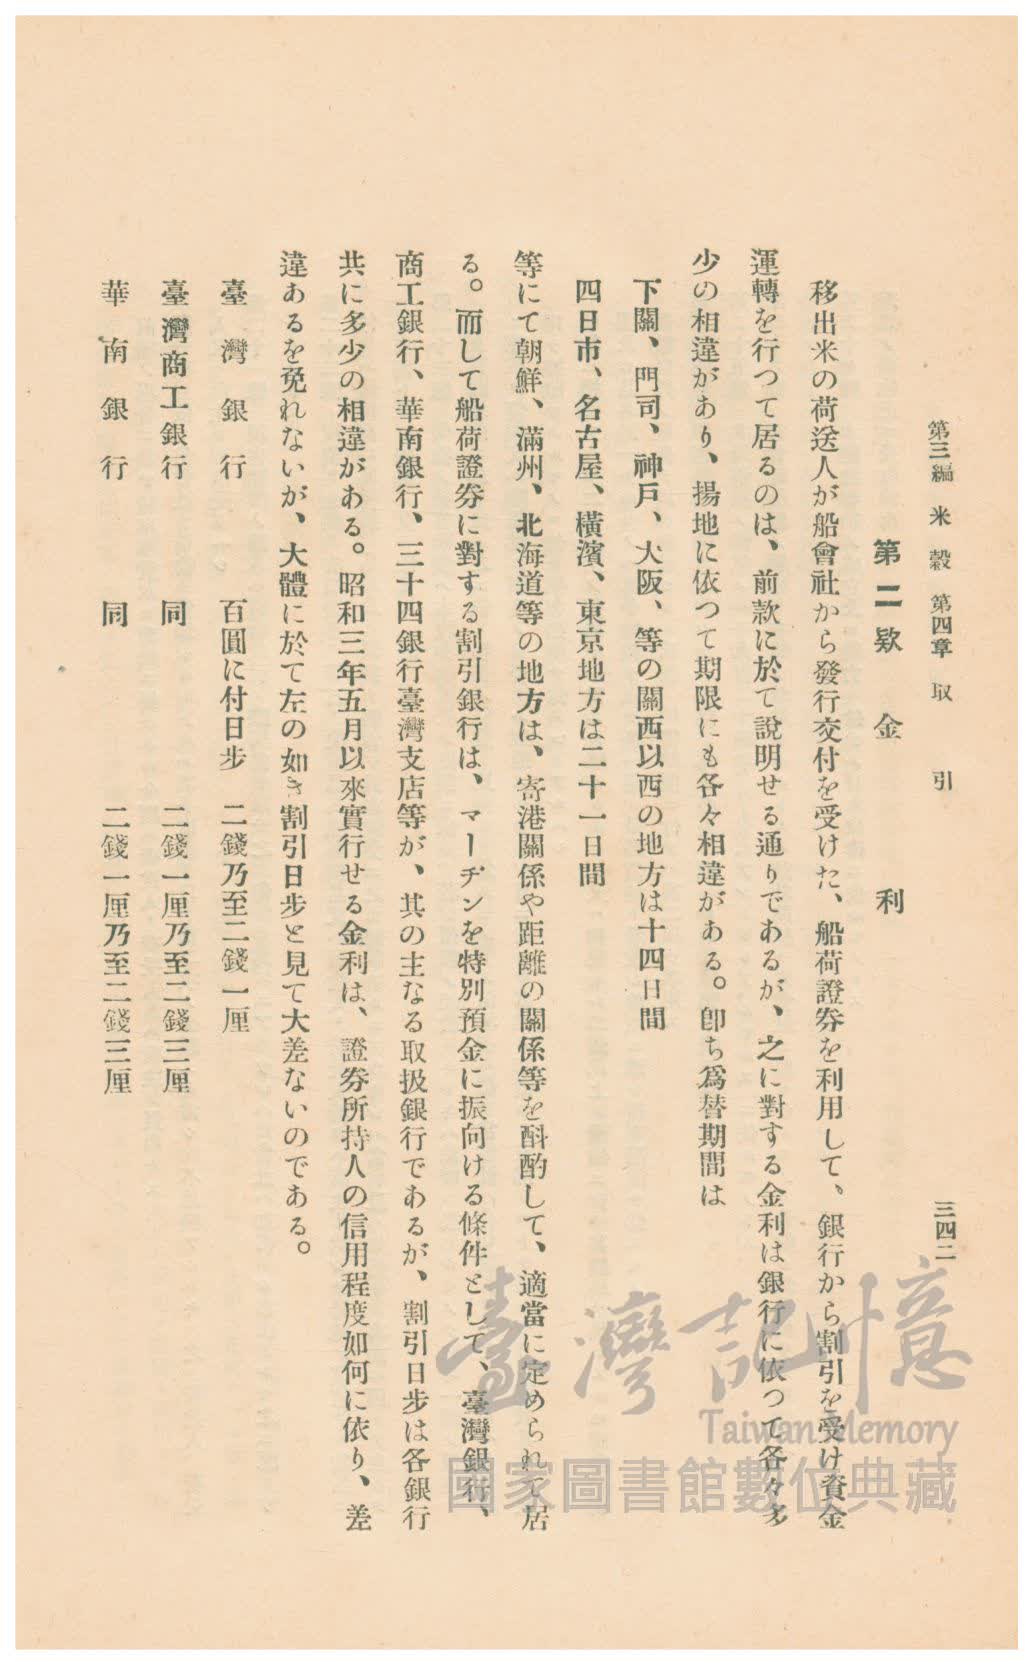 第三編 米穀 第四章 取引
三四二
第二欵 金利
移出米の荷送人が船會社から發行交付を受けた、船荷證券を利用して、銀行から割引を受け資金
運轉を行つて居るのは、前款に於て說明せる通りであるが、之に對する金利は銀行に依つて各々多
少の相違があり、揚地に依つて期限にも各々相違がある。卽ち爲替期間は
下關、門司、神戶、大阪、等の關西以西の地方は十四日間
四日市、名古屋、橫濱、東京地方は二十一日間
等にて朝鮮、滿州、北海道等の地方は、寄港關係や距離の關係等を酙酌して、適當に定められて居
る。而して船荷證券に對する割引銀行は、マーヂンを特別預金に振向ける條件として、臺灣銀行、
商工銀行、華南銀行、三十四銀行臺灣支店等が、其の主なる取扱銀行であるが、割引日步は各銀行
共に多少の相違がある。昭和三年五月以來實行せる金利は、證券所持人の信用程度如何に依り、差
違あるを免れないが、大體に於て左の如き割引日步と見て大差ないのである。
臺灣銀行 百圓に付日步 二錢乃至二錢一厘
臺灣商工銀行 同 二錢一厘乃至二錢三厘
華南銀行 同 二錢一厘乃至二錢三厘
臺灣記憶
Taiwan Memory
國家圖書館數位典藏